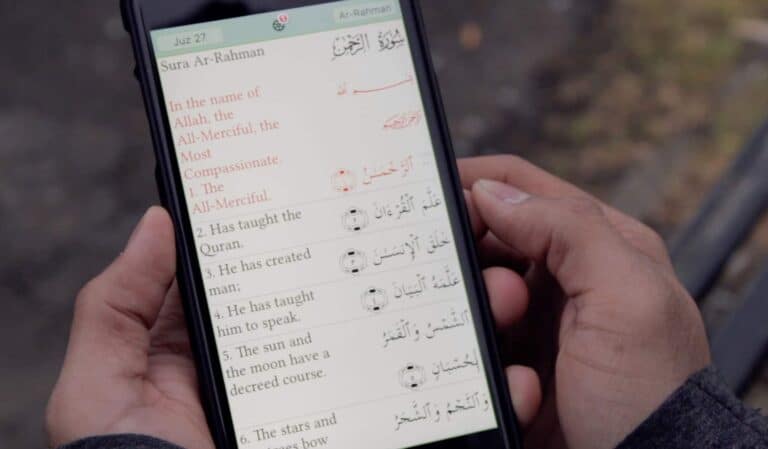 Juz 27
Ar-Rahman
Sura Ar-Rahman
سُورَةُ الرَّحْمَٰن
In the name of
Allah, the
All-Merciful, the
Most
Compassionate.
1. The
All-Merciful.
بِسْمِ ٱللَّهِ
ٱلرَّحْمَٰنِ ٱلرَّحِيمِ
ٱلرَّحْمَـٰنُ ١
2. Has taught the
Quran.
عَلَّمَ ٱلْقُرْءَانَ ٢
3. He has created
man;
خَلَقَ ٱلْإِنسَـٰنَ ٣
4. He has taught
him to speak.
عَلَّمَهُ ٱلْبَيَانَ ٤
5. The sun and
the moon have a
decreed course.
ٱلشَّمْسُ وَٱلْقَمَرُ
بِحُسْبَانٍ ٥
6. The stars and
bow
وَٱلنَّجْمُ وَٱلشَّجَرُ